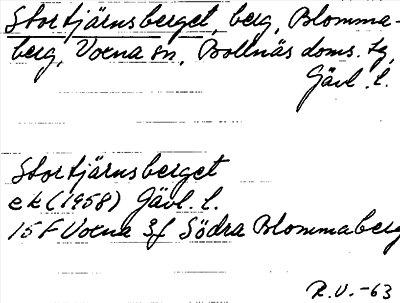 Stortjärnsberget, berg, Blomma-
berg, Voxna sn, Bollnäs doms. tg,
Gävl. l.
Stortjärnsberget
ek (1958) Gävl. l.
15F Voxna 3f Södra Blommaberg
R.V. -63